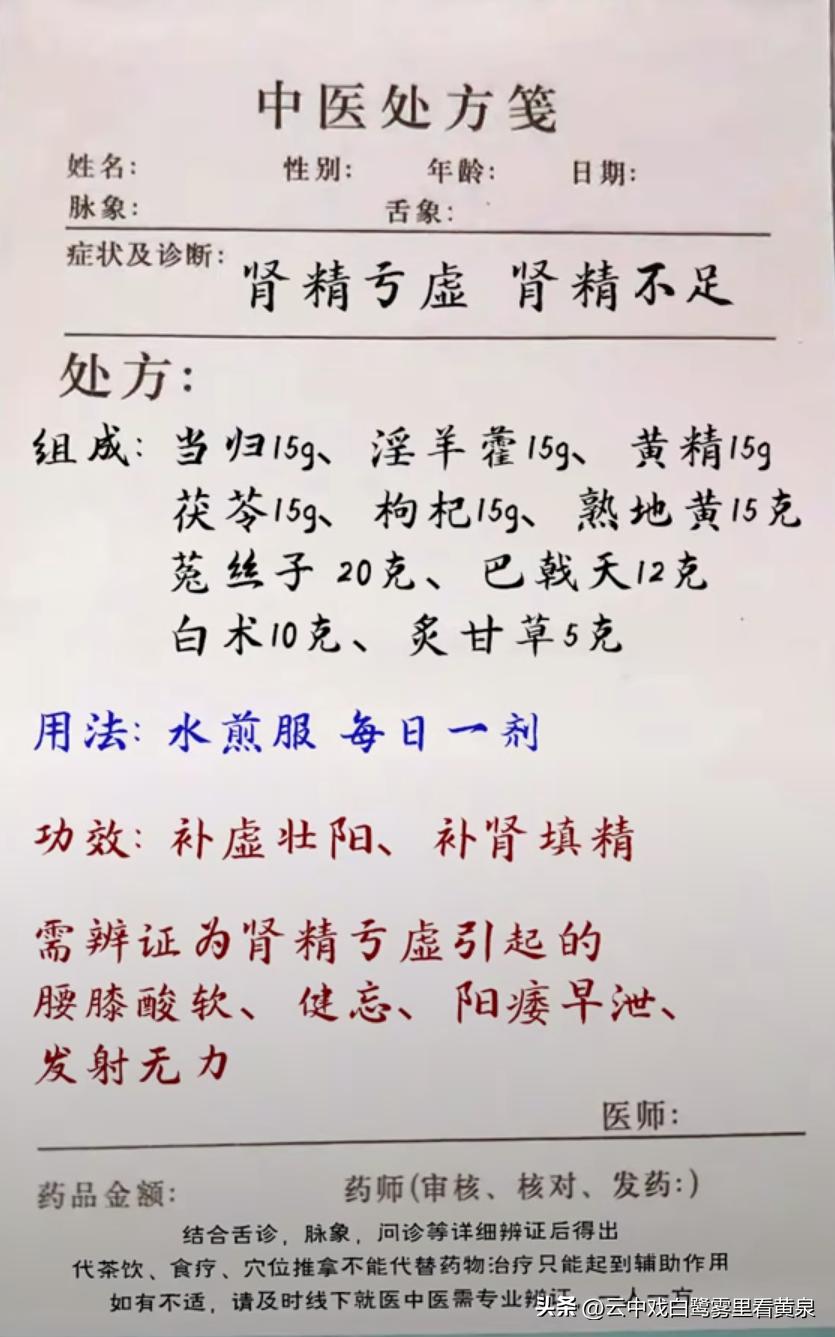 中医处方笺
姓名: 性别: 年龄: 日期:
脉象: 舌象:
症状及诊断: 肾精亏虚 肾精不足
处方:
组成: 当归15g、 淫羊藿15g、 黄精15g
茯苓15g、 枸杞15g、 熟地黄15克
菟丝子 20克、巴戟天12克
白术10克、炙甘草5克
用法: 水煎服 每日一剂
功效: 补虚壮阳、补肾填精
需辨证为肾精亏虚引起的
腰膝酸软、健忘、阳痿早泄、
发射无力
医师:
药品金额: 药师(审核、核对、发药:)
结合舌诊，脉象，问诊等详细辨证后得出
代茶饮、食疗、穴位推拿不能代替药物治疗只能起到辅助作用
如有不适，请及时线下就医中医需专业辨证 一人一方
头条 @云中戏白鹭雾里看黄泉